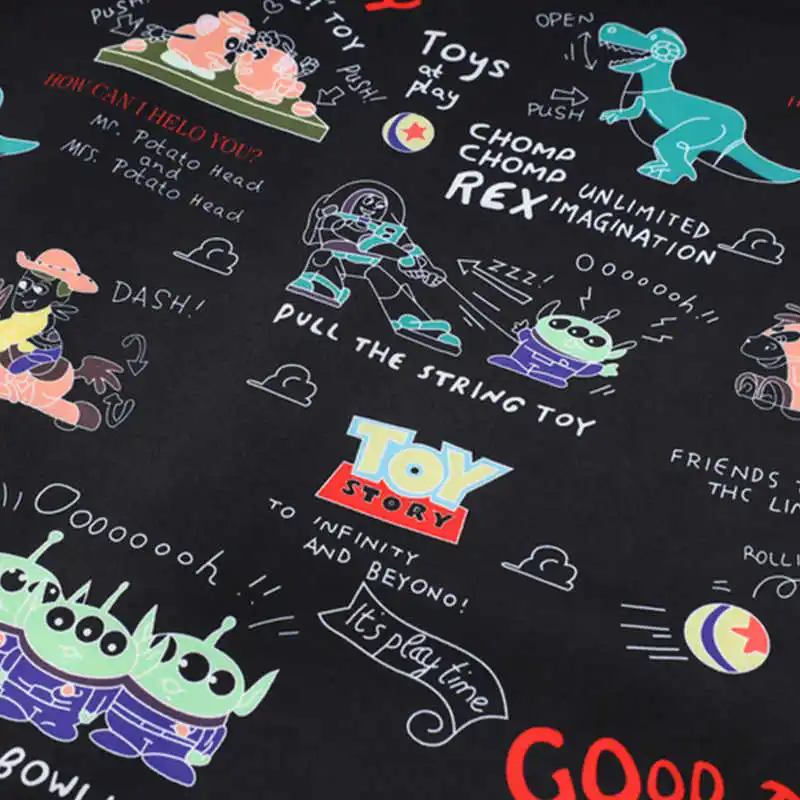 PUSH!
TOY
PUSH!
HOW CAN I HELO YOU?
Mr. Potato Head
and
Mrs. Potato Head
Toys
at
play
OPEN
PUSH
CHOMP
CHOMP
REX
UNLIMITED
IMAGINATION
DASH!
ZZZ!
Oooooooh!!
PULL THE STRING TOY
TOY
STORY
TO INFINITY
AND BEYONO!
FRIENDS
THC
ROLLI
Oooooooooh!!
It's play time
BOWL
GOOD